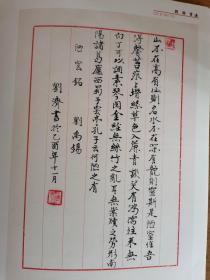 山不在高有仙則名水不在深有龍則靈斯是陋室惟吾
德馨苔痕上堦綠草色入簾青談笑有鴻儒往來無
白丁可以調素琴閱金經無絲竹之亂耳無案牘之勞形南
陽諸葛廬西蜀子雲亭孔子云何陋之有
陋室銘 劉禹錫
劉濟書於乙酉年十一月